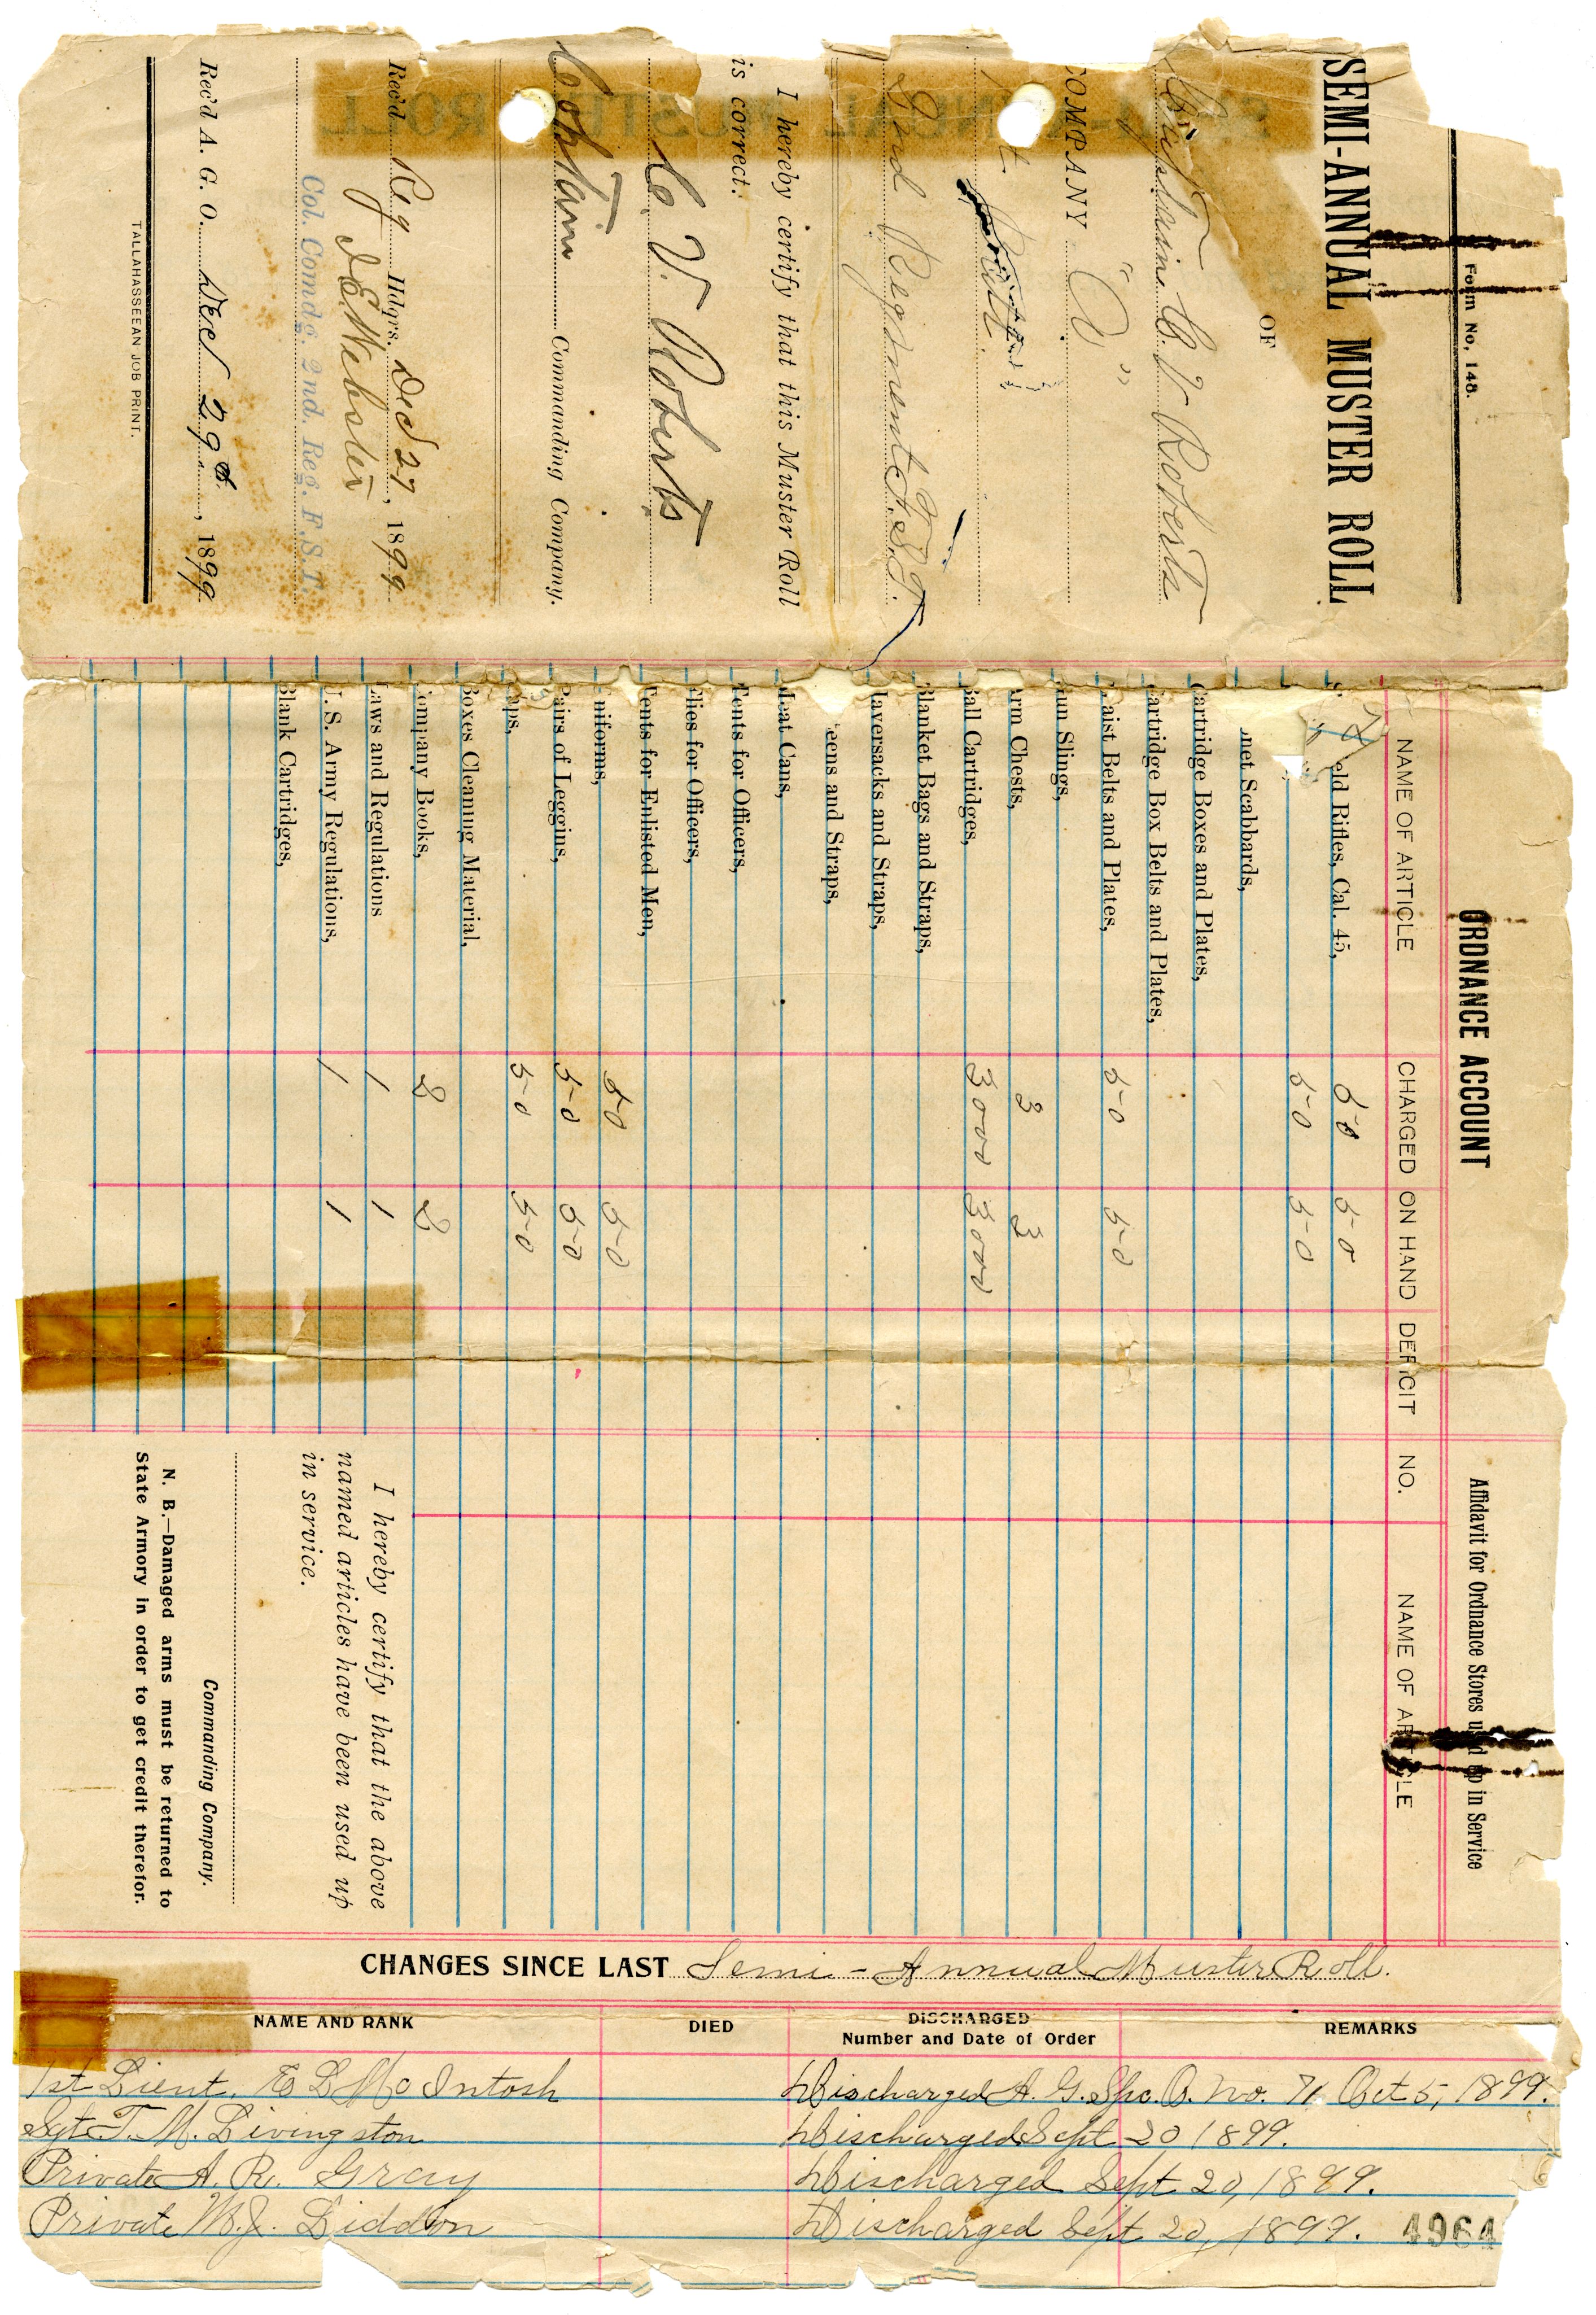 Form No. 148.
SEMI-ANNUAL MUSTER ROLL
OF
Captain C. V. Roberts
COMPANY "C"
2nd Regiment F.S.T.
I hereby certify that this Muster Roll
is correct.
C. V. Roberts
Captain Commanding Company.
Rec'd Reg Hdqrs. Dec 27, 1899
J E Webster
Col. Comdg. 2nd. Reg. F.S.T.
Rec'd A. G. O. Dec 29th, 1899
TALLAHASSEEAN JOB PRINT.
ORDNANCE ACCOUNT
NAME OF ARTICLE CHARGED ON HAND DEFICIT
eld Rifles, Cal. 45, 50 50
50 50
net Scabbards,
Cartridge Boxes and Plates,
artridge Box Belts and Plates,
aist Belts and Plates, 50 50
un Slings,
rm Chests, 3 3
all Cartridges, 3000 3000
Blanket Bags and Straps,
laversacks and Straps,
eens and Straps,
Meat Cans,
Tents for Officers,
Flies for Officers,
Tents for Enlisted Men,
niforms, 50 50
Pairs of Leggins, 50 50
aps, 50 50
Boxes Cleaning Material,
ompany Books, 2 2
Laws and Regulations 1 1
U. S. Army Regulations, 1 1
Blank Cartridges,
Affidavit for Ordnance Stores used up in Service
NO. NAME OF ARTICLE
I hereby certify that the above
named articles have been used up
in service.
Commanding Company.
N. B.—Damaged arms must be returned to
State Armory in order to get credit therefor.
CHANGES SINCE LAST Semi-Annual Muster Roll.
NAME AND RANK DIED DISCHARGED Number and Date of Order REMARKS
1st Lieut. E L McIntosh Discharged A. G. Spc. O. No. 71 Oct 5, 1899.
Sgt T. M. Livingston Discharged Sept 20 1899.
Private A. R. Gray Discharged Sept 20, 1899.
Private W. J. Liddon Discharged Sept 20, 1899.
4964